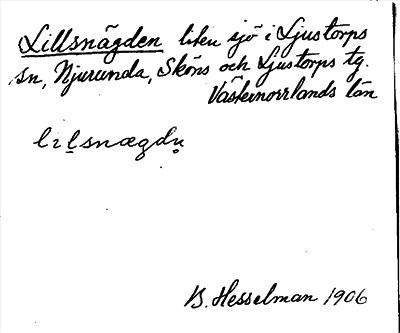 Lillsnägden liten sjö i Ljustorps
sn, Njurunda, Sköns och Ljustorps tg.
Västernorrlands län
lılsnægdn̥
B. Hesselman 1906